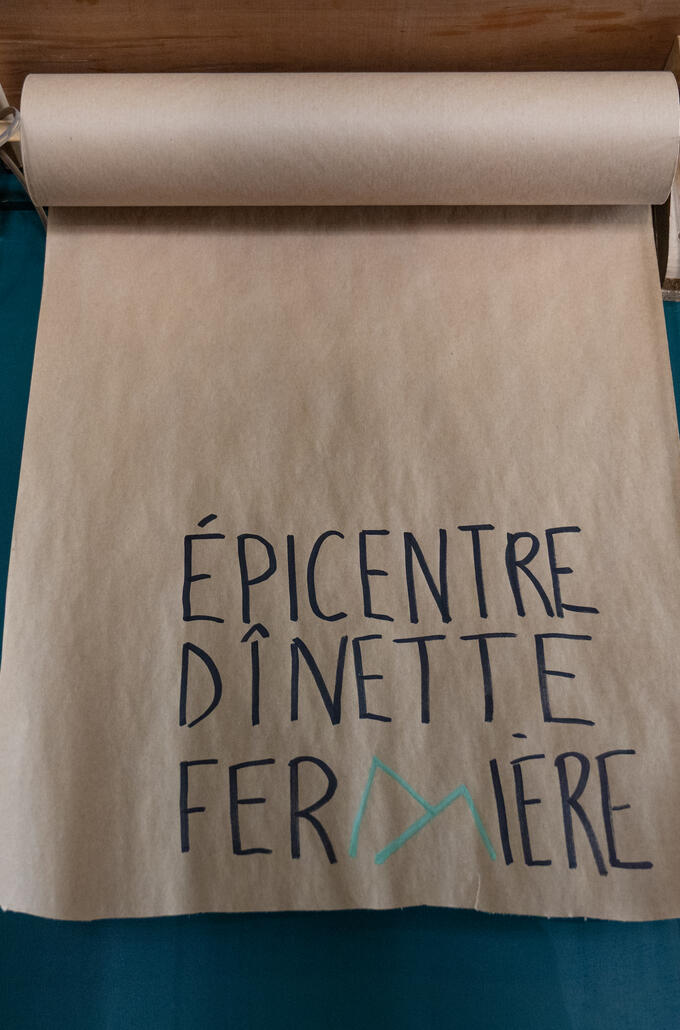 ÉPICENTRE
DÎNETTE
FERMIÈRE